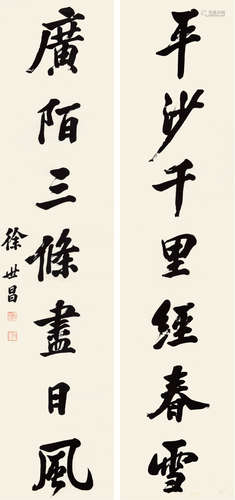 平沙千里經春雪
廣陌三條盡日風
徐世昌